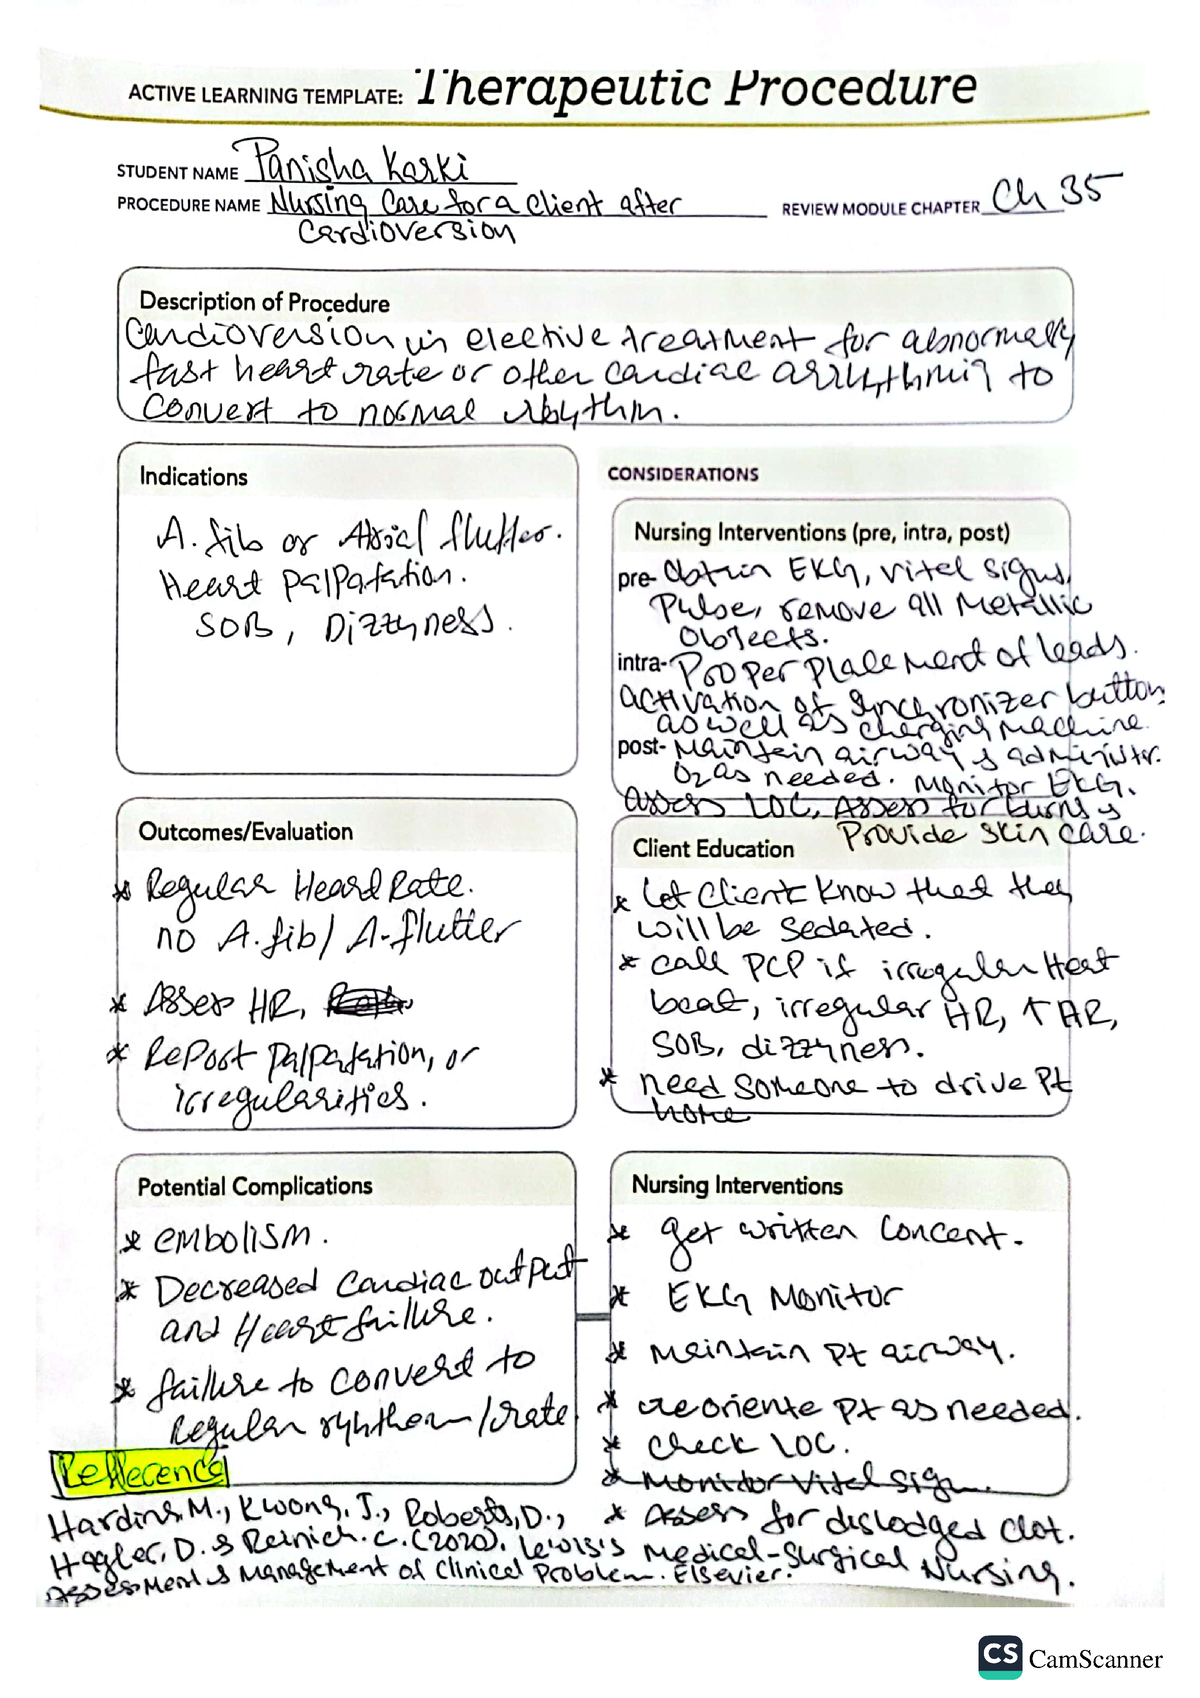 ACTIVE LEARNING TEMPLATE: Therapeutic Procedure
STUDENT NAME Panisha Karki
PROCEDURE NAME Nursing Care for a Client after
Cardioversion
REVIEW MODULE CHAPTER Ch 35
Description of Procedure
Cardioversion is elective treatment for abnormally
fast heart rate or other cardiac arrhythmia to
convert to normal rhythm.
Indications
A. fib or Atrial flutter.
Heart Palpatation.
SOB, Dizzyness.
CONSIDERATIONS
Nursing Interventions (pre, intra, post)
pre- Obtain EKG, vital signs,
Pulse, remove all Metallic
Objects.
intra- Proper placement of leads.
activation of Synchronizer button
as well as charging machine.
post- Maintain airway & administer.
O2 as needed. Monitor EKG.
assess LOC, Assess for burns &
Provide skin care.
Outcomes/Evaluation
* Regular Heard Rate.
no A.fib/ A-flutter
* Asses HR,
* RePort palpatation, or
irregularities.
Client Education
* Let Client Know that they
will be Sedated.
* call PCP if irregular Heat
beat, irregular HR, ↑ HR,
SOB, dizzyness.
* need someone to drive Pt
home
Potential Complications
* embolism.
* Decreased Cardiac output
and Heart failure.
* failure to convert to
Regular ryhthem/rate
Nursing Interventions
* get written Concent.
* EKG Monitor
* Maintain Pt airway.
* reoriente Pt as needed.
* check LOC.
* Monitor Vital Sign.
* Assess for dislodged Clot.
Refference
Harding, M., Kwong, J., Roberts, D.,
Hagler, D. & Reinich. C. (2020). Lewis's Medical-Surgical Nursing.
Assessment & Management of Clinical Problem. Elsevier.
CS CamScanner